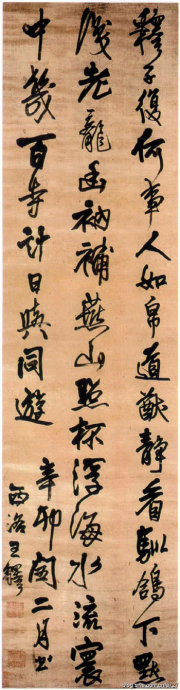 釋子復何事人如帛道猷靜看馴鴿下
老龍幽衲補燕山點杯浮海水流寰
中幾百寺計日與同遊
辛卯閏二月書
西洛王鐸